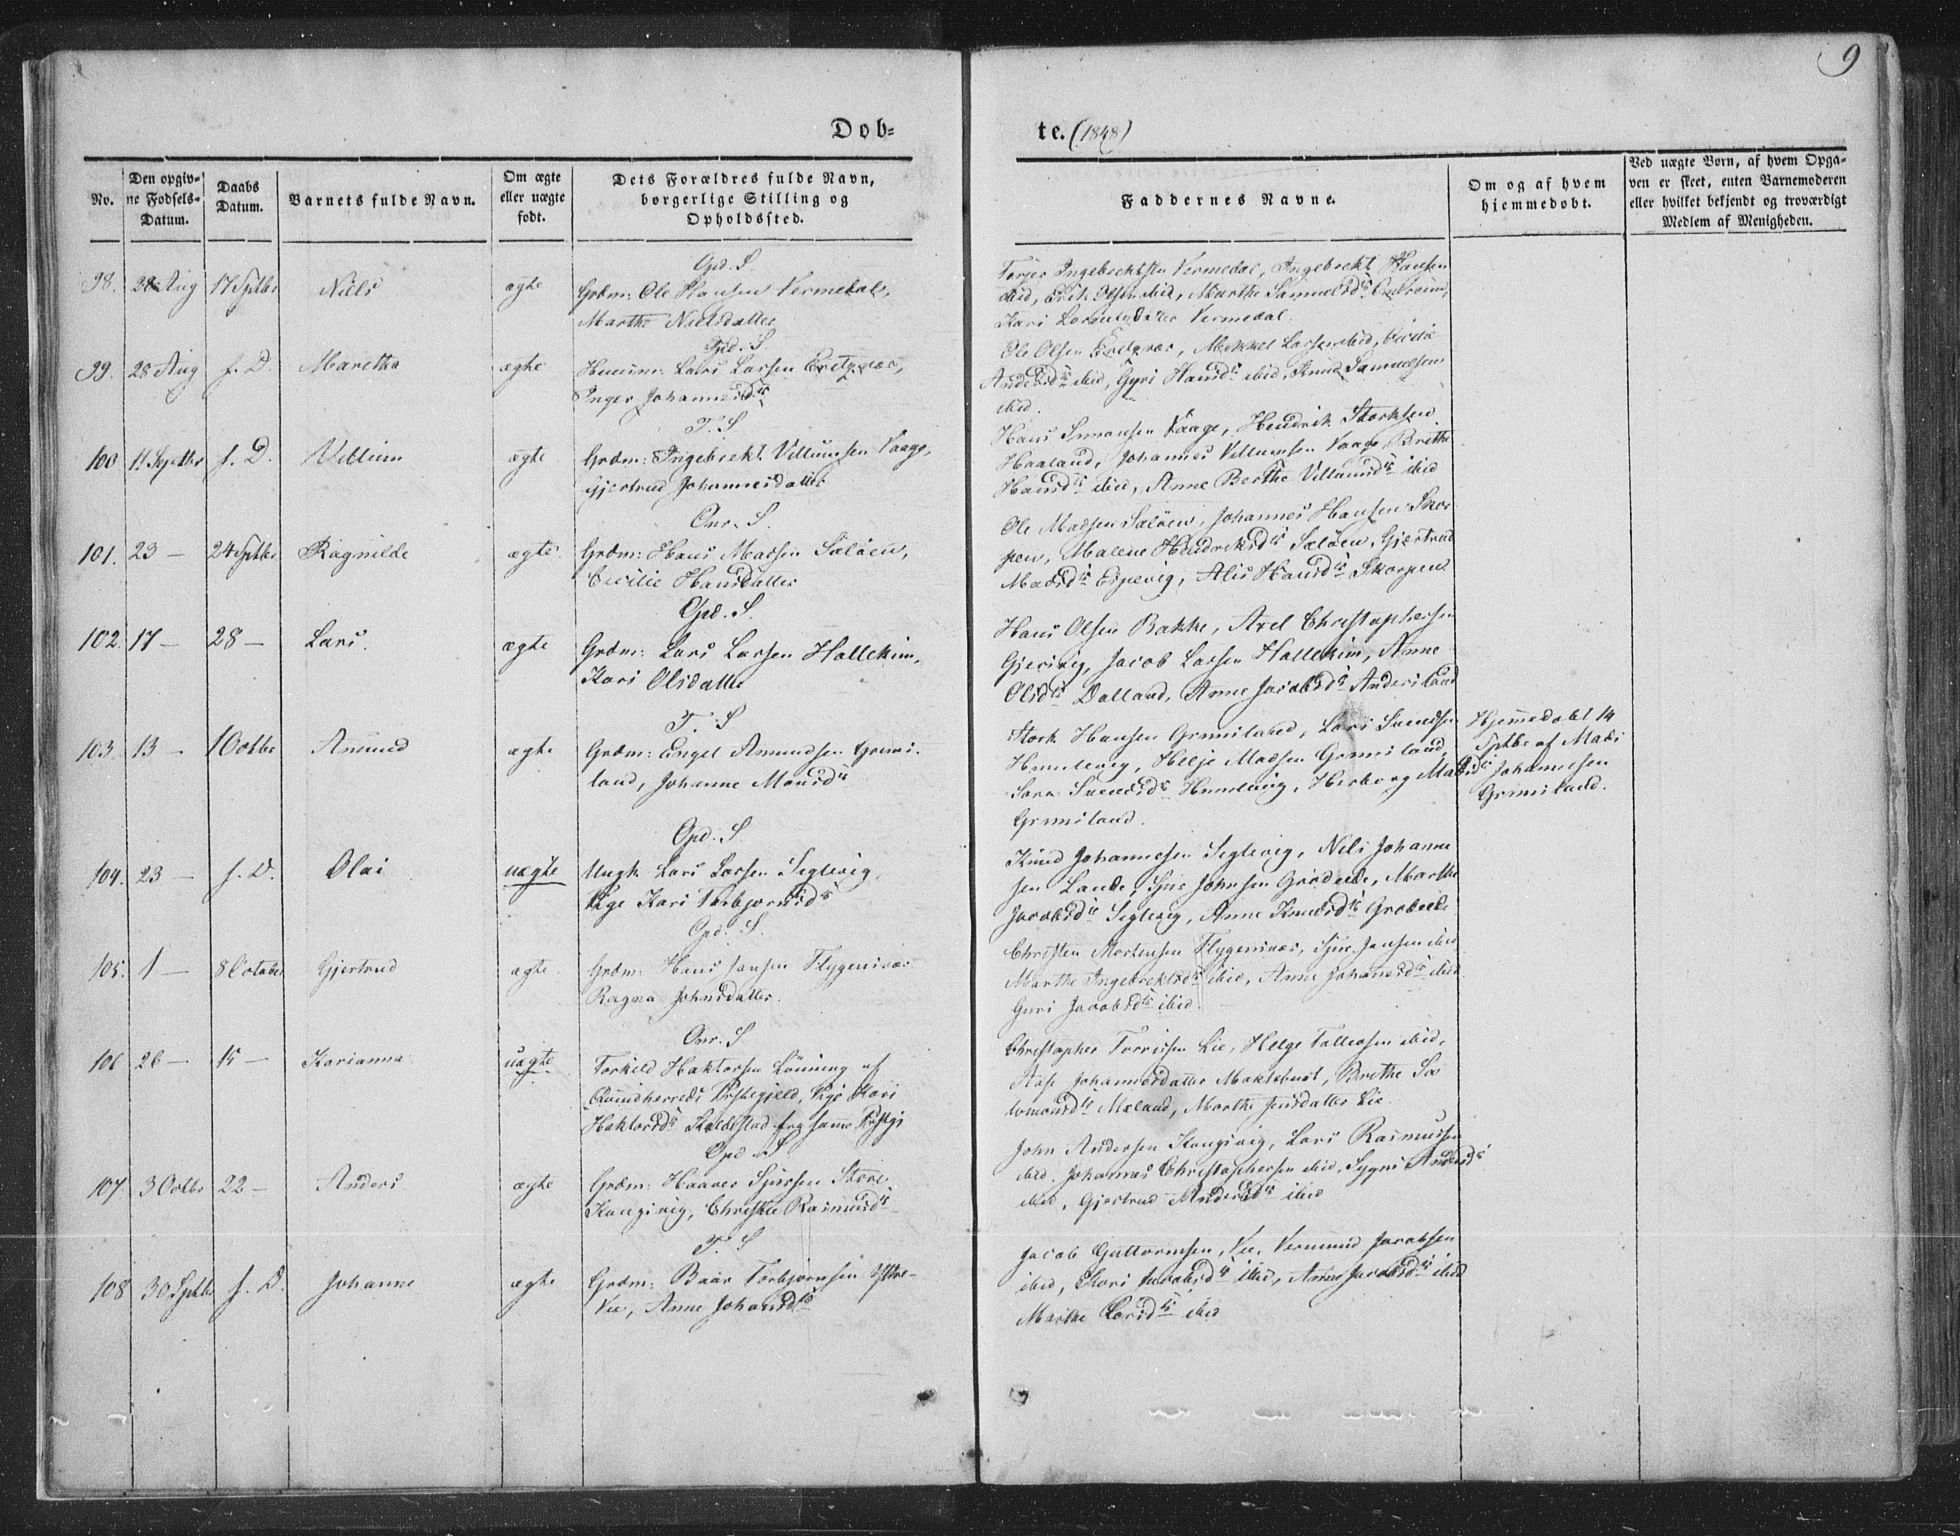 9
Døb-
te. (1848)
No.
Den opgiv-
ne Fødsels-
Datum.
Daabs
Datum.
Barnets fulde Navn.
Om ægte
eller uægte
født.
Dets Forældres fulde Navn,
borgerlige Stilling og
Opholdssted.
Faddernes Navne.
Om og af hvem
hjemmedøbt.
Ved uægte Børn, af hvem Opga-
ven er skeet, enten Barnemoderen
eller hvilket bekjendt og troværdigt
Medlem af Menigheden.
Opd. S
98. 28 Aug 17 Sptbr Niels ægte Grdm: Ole Hansen Vermedal,
Marthe Nielsdatter
Ingebrektsen Vermedal, Ingebrekt Hansen
ibid, Erik Olsen ibid, Marthe Samuelsd
Kari Vermedal.
Opd. S
99. 28 Aug f. D. Maretha ægte Huusm: Lars Larsen
Inger Johannesdtr
Ole Olsen Mikkel Larsen ibid, Cicilie
Andersdtr ibid, Gyri Hansdtr ibid, Knud Samuelsen
ibid.
T. S
100 11 Septbr f. D. Villum ægte Grdm: Ingebrekt Villumsen Vaage,
Gjertrud Johannesdatter
Hans Simonsen Vaage, Hendrik Storksen
Haaland, Johannes Villumsen Vaage, Brithe
Hansdtr ibid, Anne Berthe Villumsdtr ibid
Onr. S
101. 23 — 24 Sptbr Ragnilde ægte Grdm: Hans Madsen Sæløen,
Cecilie Hansdatter
Ole Madsen Sæløen, Johannes Hansen Skor
pen, Malene Hendriksdtr Sæløen, Gjertrud
Madsdtr Espevig, Alis Hansdtr Skorpen
Opd. S
102. 17 — 28 — Lars. ægte Grdm: Lars Larsen Hallekim,
Kari Olsdatter
Hans Olsen Bakke, Axel Christophersen
Gjersvig, Jacob Larsen Hallekim, Anne
Olsdtr Dalland, Anne Jacobsdtr Andersland
T. S
103. 13 — 1 Octbr Amund ægte Grdm: Engel Amundsen Grims
land, Johanne Monsdtr
Stork Hansen Grimsland, Lars Svendsen
Humlevig, Helje Madsen Grimsland,
Sara Svendsdtr Humlevig, Herborg Madsdtr
Grimsland.
Hjemmedøbt 14
Sptbr af Mads
Johannesen
Grimsland.
Opd. S
104. 23 — f. D. Olai uægte Ungk Lars Larsen Seglevig
Pige Kari Torbjørnsdtr
Knud Johannesen Seglevig, Nels Johanne
sen Lande, Sjur Johnsen Marthe
Jacobsdtr Seglevig, Anne Knudsdtr
Opd. S.
105. 1 — 8 October Gjertrud ægte Grdm: Hans Jansen Flygensvær
Ragna Johnsdatter.
Christen Mortensen Flygensvær, Sjur Jansen ibid
Marthe Ingebrektsdtr ibid, Anne Johansdtr ibid
Guri Jacobsdtr ibid.
Onr. S
106 26 — 15 — Karianna uægte Torkild Haktorsen Lønning af
Qvindherreds Præstegjeld, Pige Kari
Haktorsdtr fra samme Præstgj
Christopher Torrisen Lie, Helge Tollevsen ibid,
Johannesdatter Brithe Sa
lomonsdtr Mæland, Marthe Jensdatter Lie.
Opd. S
107. 3 Octbr 22 — Anders ægte Grdm: Haaver Sjursen Støre
Kongsvig, Christie Rasmusdtr
John Andersen Kongsvig, Lars Rasmussen
ibid. Johannes Christophersen ibid, Sygni Andersdtr
ibid, Gjertrud Andersdtr ibid
T. S
108 30 Sptbr f. D. Johanne ægte Grdm: Baar Torbjørnsen Yttre-
Vie, Anne Johansdtr
Jacob Guttormsen, Vie, Vermund Jacobsen
ibid, Kari Jacobsdtr ibid, Anne Jacobsdtr ibid
Marthe Larsdtr ibid